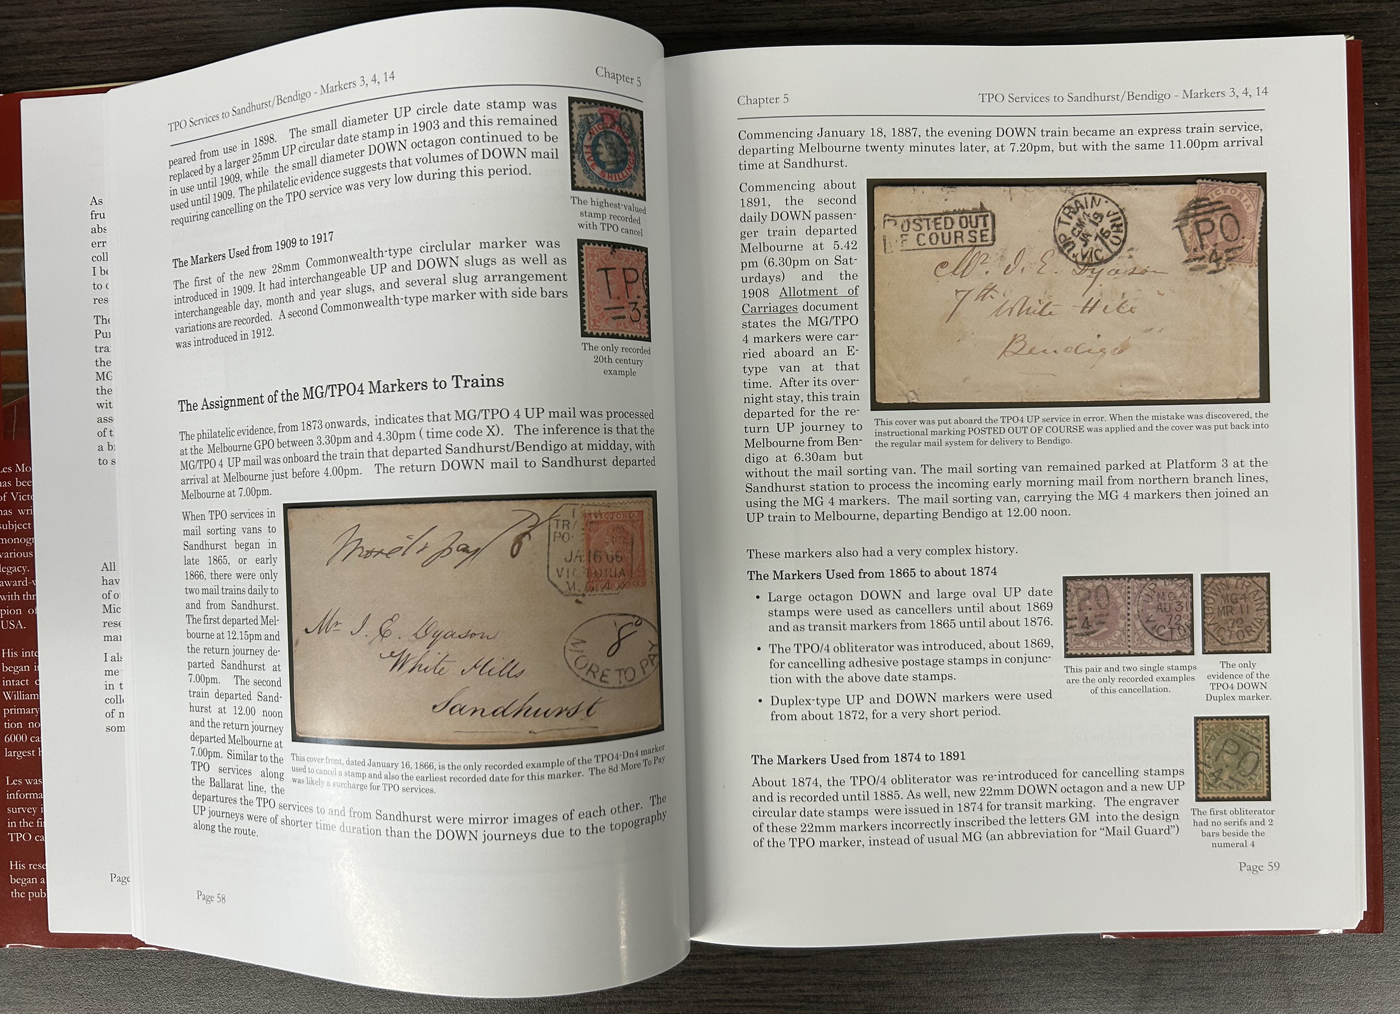 As
fru
abs
err
coll
I be
to c
res
The
Pur
tra
the
MG
the
wit
ass
of t
a b
to s
All
hav
of o
Mic
rese
mar
I als
me
in t
coll
of n
som
Page
Les Mo
has bee
of Victo
has wri
subject
monogr
various
legacy.
award-w
with thr
pion of
USA.
His inte
began i
intact c
William
primary
tion no
6000 ca
largest h
Les was
informa
survey i
in the fi
TPO ca
His rese
began a
the pub
TPO Services to Sandhurst/Bendigo - Markers 3, 4, 14
Chapter 5
peared from use in 1898. The small diameter UP circle date stamp was
replaced by a larger 25mm UP circular date stamp in 1903 and this remained
in use until 1909, while the small diameter DOWN octagon continued to be
used until 1909. The philatelic evidence suggests that volumes of DOWN mail
requiring cancelling on the TPO service was very low during this period.
The highest-valued
stamp recorded
with TPO cancel
The Markers Used from 1909 to 1917
The first of the new 28mm Commonwealth-type circlular marker was
introduced in 1909. It had interchangeable UP and DOWN slugs as well as
interchangeable day, month and year slugs, and several slug arrangement
variations are recorded. A second Commonwealth-type marker with side bars
was introduced in 1912.
T.P.
3
The only recorded
20th century
example
The Assignment of the MG/TPO4 Markers to Trains
The philatelic evidence, from 1873 onwards, indicates that MG/TPO 4 UP mail was processed
at the Melbourne GPO between 3.30pm and 4.30pm ( time code X). The inference is that the
MG/TPO 4 UP mail was onboard the train that departed Sandhurst/Bendigo at midday, with
arrival at Melbourne just before 4.00pm. The return DOWN mail to Sandhurst departed
Melbourne at 7.00pm.
When TPO services in
mail sorting vans to
Sandhurst began in
late 1865, or early
1866, there were only
two mail trains daily to
and from Sandhurst.
The first departed Mel-
bourne at 12.15pm and
the return journey de-
parted Sandhurst at
7.00pm. The second
train departed Sand-
hurst at 12.00 noon
and the return journey
departed Melbourne at
7.00pm. Similar to the
TPO services along
the Ballarat line, the
departures the TPO services to and from Sandhurst were mirror images of each other. The
UP journeys were of shorter time duration than the DOWN journeys due to the topography
along the route.
More to pay 8
VICTORIA
TRA
PO
JA 16 66
VICTORIA
Mr I. E. Dyason
White Hills
Sandhurst
8d
MORE TO PAY
This cover front, dated January 16, 1866, is the only recorded example of the TPO4-Dn4 marker
used to cancel a stamp and also the earliest recorded date for this marker. The 8d More To Pay
was likely a surcharge for TPO services.
Page 58
Chapter 5
TPO Services to Sandhurst/Bendigo - Markers 3, 4, 14
Commencing January 18, 1887, the evening DOWN train became an express train service,
departing Melbourne twenty minutes later, at 7.20pm, but with the same 11.00pm arrival
time at Sandhurst.
Commencing about
1891, the second
daily DOWN passen-
ger train departed
Melbourne at 5.42
pm (6.30pm on Sat-
urdays) and the
1908 Allotment of
Carriages document
states the MG/TPO
4 markers were car-
ried aboard an E-
type van at that
time. After its over-
night stay, this train
departed for the re-
turn UP journey to
Melbourne from Ben-
digo at 6.30am but
without the mail sorting van. The mail sorting van remained parked at Platform 3 at the
Sandhurst station to process the incoming early morning mail from northern branch lines,
using the MG 4 markers. The mail sorting van, carrying the MG 4 markers then joined an
UP train to Melbourne, departing Bendigo at 12.00 noon.
POSTED OUT
OF COURSE
UP TRAIN
GM4
JN 19
76
VIC
VICTORIA
TPO
4
Mr. I. E. Dyason
7th White Hills
Bendigo
This cover was put aboard the TPO4 UP service in error. When the mistake was discovered, the
instructional marking POSTED OUT OF COURSE was applied and the cover was put back into
the regular mail system for delivery to Bendigo.
These markers also had a very complex history.
The Markers Used from 1865 to about 1874
• Large octagon DOWN and large oval UP date
stamps were used as cancellers until about 1869
and as transit markers from 1865 until about 1876.
• The TPO/4 obliterator was introduced, about 1869,
for cancelling adhesive postage stamps in conjunc-
tion with the above date stamps.
• Duplex-type UP and DOWN markers were used
from about 1872, for a very short period.
PO
4
MG4
AU 31
72
VICTORIA
DOWN TRAIN
MG4
MR 11
72
VICTORIA
This pair and two single stamps
are the only recorded examples
of this cancellation.
The only
evidence of the
TPO4 DOWN
Duplex marker.
The Markers Used from 1874 to 1891
About 1874, the TPO/4 obliterator was re-introduced for cancelling stamps
and is recorded until 1885. As well, new 22mm DOWN octagon and a new UP
circular date stamps were issued in 1874 for transit marking. The engraver
of these 22mm markers incorrectly inscribed the letters GM into the design
of the TPO marker, instead of usual MG (an abbreviation for "Mail Guard")
PO
4
The first obliterator
had no serifs and 2
bars beside the
numeral 4
Page 59